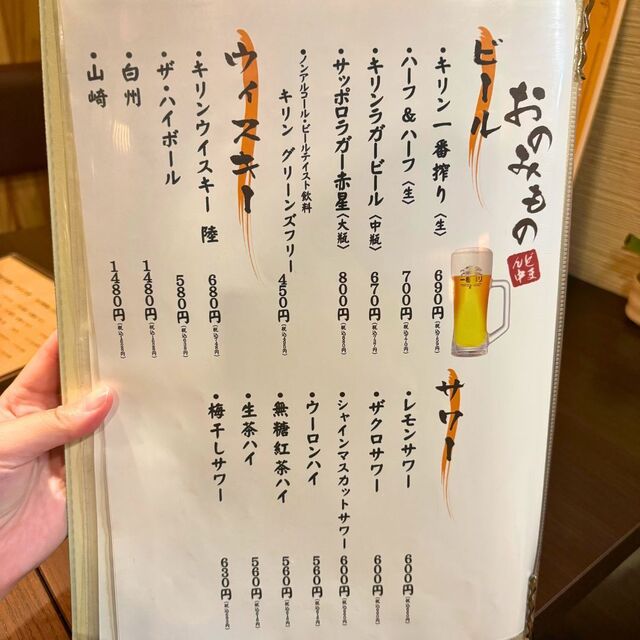 おのみもの
ビール
・キリン一番搾り〈生〉 690円
・ハーフ&ハーフ〈生〉 700円
・キリンラガービール〈中瓶〉 670円
・サッポロラガー赤星〈大瓶〉 800円
・ノンアルコール・ビールテイスト飲料
キリン グリーンズフリー 450円
ウィスキー
・キリンウイスキー 陸 680円
・ザ・ハイボール 580円
・白州 1480円
・山崎 1480円
サワー
・レモンサワー 600円
・ザクロサワー 600円
・シャインマスカットサワー 600円
・ウーロンハイ 560円
・無糖紅茶ハイ 560円
・生茶ハイ 560円
・梅干しサワー 630円